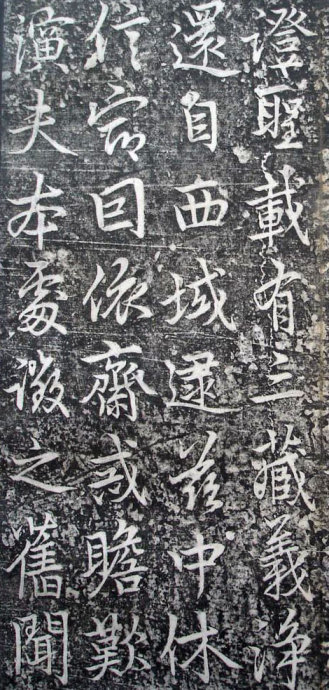 證聖載有三藏義淨
還自西域逮茲中休
信宿因依齋戒瞻歎
演夫本處徵之舊聞